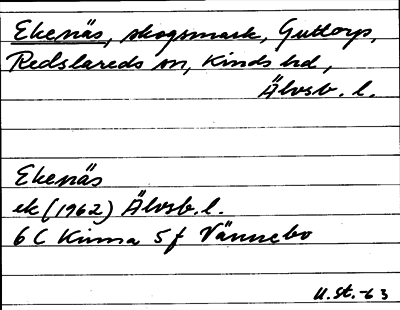 Ekenäs, skogsmark, Guttorp,
Redslareds sn, Kinds hd,
Älvsb. l.
Ekenäs
ek (1962) Älvsb. l.
6 C Kinna 5 f Vännebo
U. St. -63